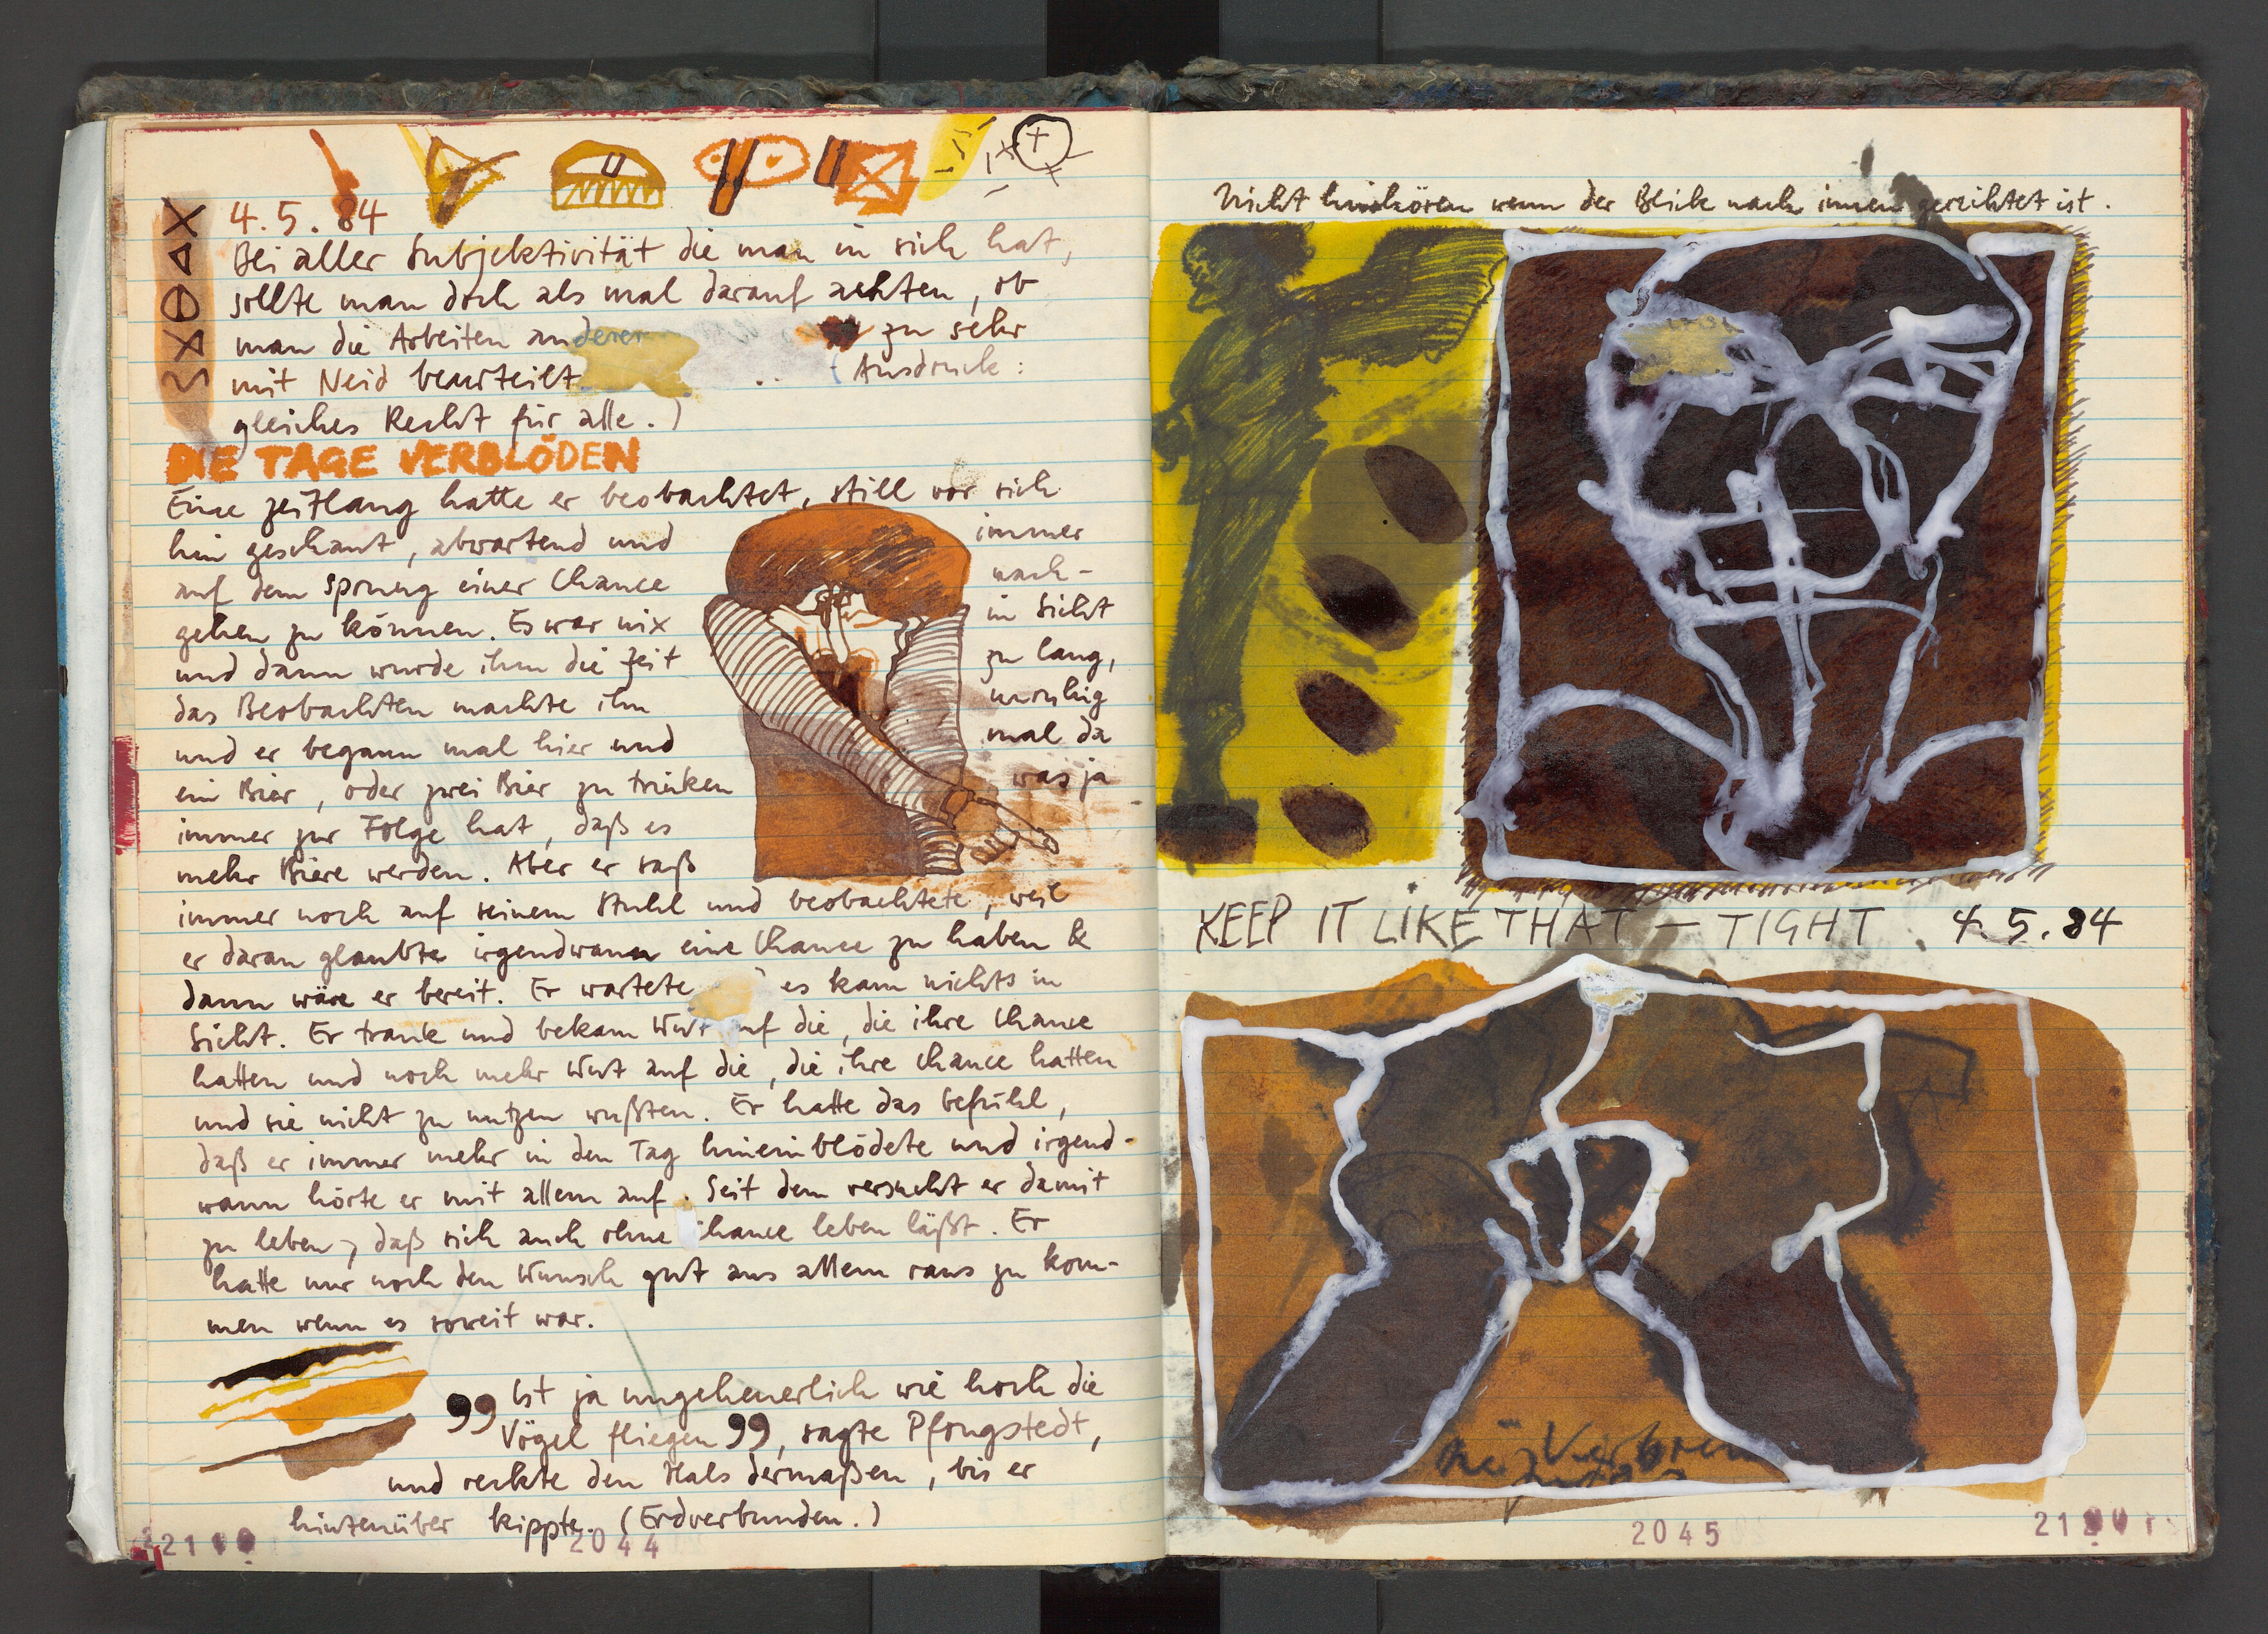 4.5.84
Bei aller Subjektivität die man in sich hat,
sollte man doch als mal darauf achten, ob
man die Arbeiten anderer zu sehr
mit Neid beurteilt. (Ausdruck:
gleiches Recht für alle.)
DIE TAGE VERBLÖDEN
Eine zeitlang hatte er beobachtet, still vor sich
hin geschaut, abwartend und immer
auf dem Sprung einer Chance nach-
gehen zu können. Es war nix in Sicht
und dann wurde ihm die Zeit zu lang,
das Beobachten machte ihn unruhig
und er begann mal hier und mal da
ein Bier, oder zwei Bier zu trinken was ja
immer zur Folge hat, daß es
mehr Biere werden. Aber er saß
immer noch auf seinem Stuhl und beobachtete, weil
er daran glaubte irgendwann eine Chance zu haben &
dann wäre er bereit. Er wartete es kam nichts in
Sicht. Er trank und bekam Wut auf die, die ihre Chance
hatten und noch mehr Wut auf die, die ihre Chance hatten
und sie nicht zu nutzen wußten. Er hatte das Gefühl,
daß er immer mehr in den Tag hineinblödete und irgend-
wann hörte er mit allem auf. Seit dem versucht er damit
zu leben, daß sich auch ohne Chance leben läßt. Er
hatte nur noch den Wunsch gut aus allem raus zu kom-
men wenn es soweit war.
99 Ist ja ungeheuerlich wie hoch die
Vögel fliegen 99, sagte Pfongstedt,
und reckte den Hals dermaßen, bis er
hintenüber kippte. (Erdverbunden.)
2044
Nicht hinhören wenn der Blick nach innen gerichtet ist.
KEEP IT LIKE THAT — TIGHT 4.5.84
2045